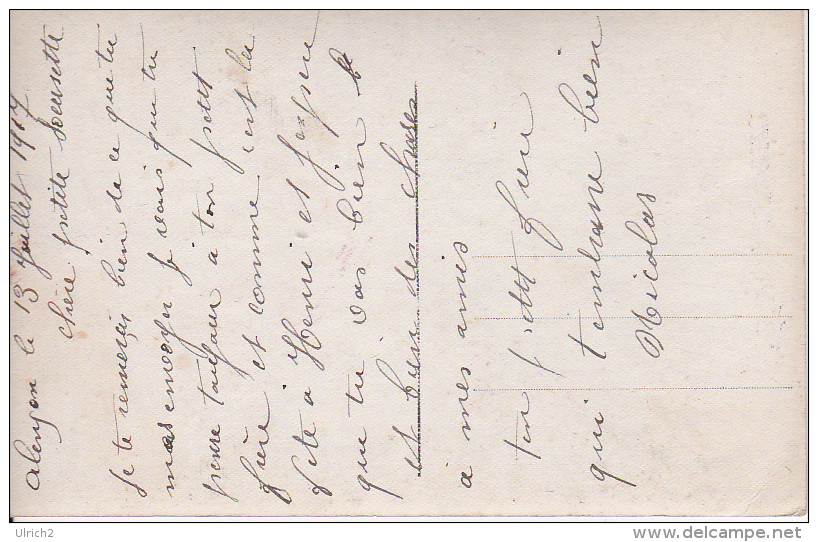 Alençon le 13 Juillet 1917
chère petite Seurette
Je te remercis bien de ce que tu
mas envoyer je vois que tu
pense toujour à ton petit
frère et comme c'est la
fete a Henri et j'espère
que tu vas bien
et bien des choses
à mes amis
ton petit frère
qui tembrasse bien
Nicolas
Ulrich2
www.delcampe.net